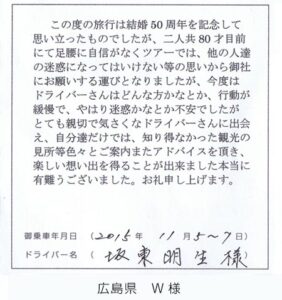 この度の旅行は結婚50周年を記念して
思い立ったものでしたが、二人共80才目前
にて足腰に自信がなくツアーでは、他の人達
の迷惑になってはいけない等の思いから御社
にお願いする運びとなりましたが、今度は
ドライバーさんはどんな方かなとか、行動が
緩慢で、やはり迷惑かなとか不安でしたが
とても親切で気さくなドライバーさんに出会
え、自分達だけでは、知り得なかった観光の
見所等色々とご案内またアドバイスを頂き、
楽しい想い出を得ることが出来ました本当に
有難うございました。お礼申し上げます。
御乗車年月日(2015年 11月5~7日)
ドライバー名(坂東明生様)
広島県 W様